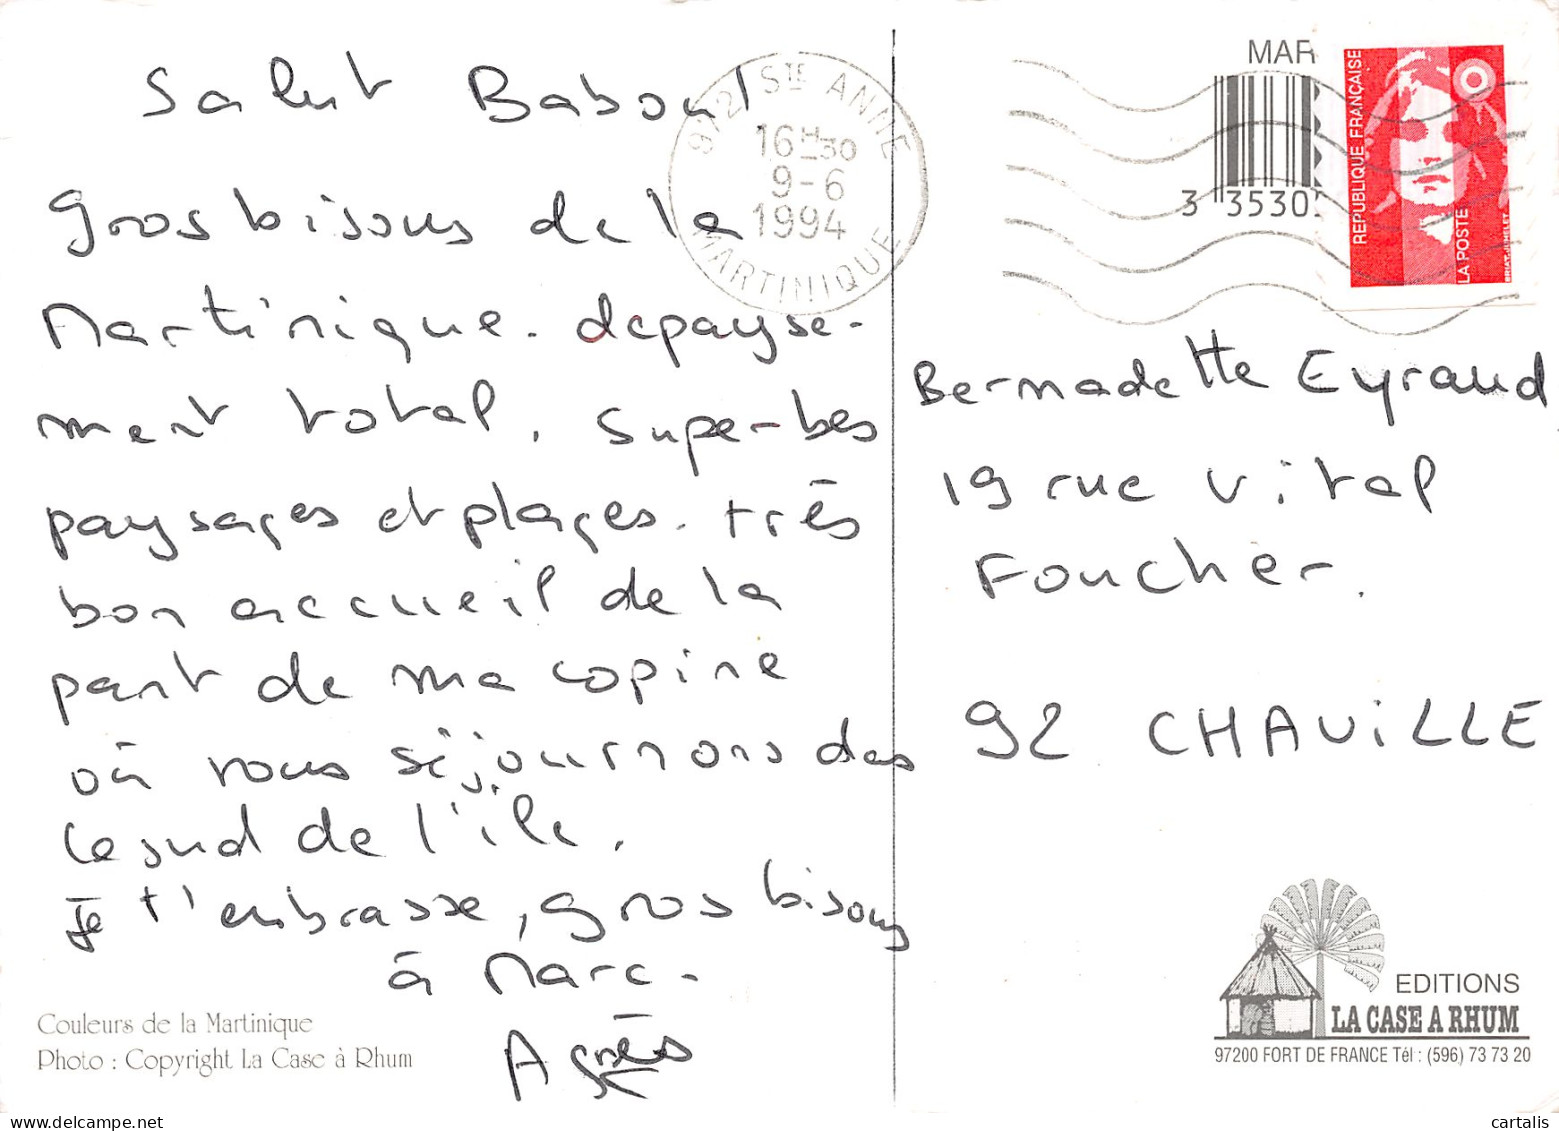 Salut Babou!
Gros bisous de la
Martinique. dépayse-
ment total. Superbes
paysages et plages. très
bon accueil de la
part de ma copine
où nous séjournons das
le sud de l'ile.
Je t'embrasse, gros bisous
à Marc.
Agnès
Couleurs de la Martinique
Photo : Copyright La Case à Rhum
972 STE ANNE
16H30
9-6
1994
MARTINIQUE
MAR
3 3530
REPUBLIQUE FRANÇAISE
LA POSTE
BRIAT-JUMELET
Bernadette Eyraud
19 rue Vital
Foucher.
92 CHAViLLE
EDITIONS
LA CASE A RHUM
97200 FORT DE FRANCE Tél : (596) 73 73 20
cartalis